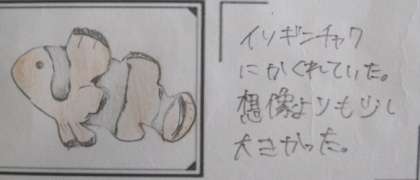 イソギンチャク
にかくれていた。
想像よりも少し
大きかった。